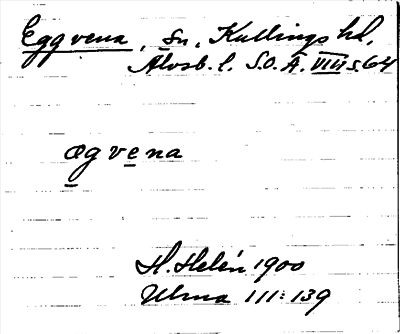 Eggvena, sn, Kullings hd,
Älvsb. l. S.O.Ä. VIII s. 64
ægvena
H. Helén 1900
Ulma 111:139